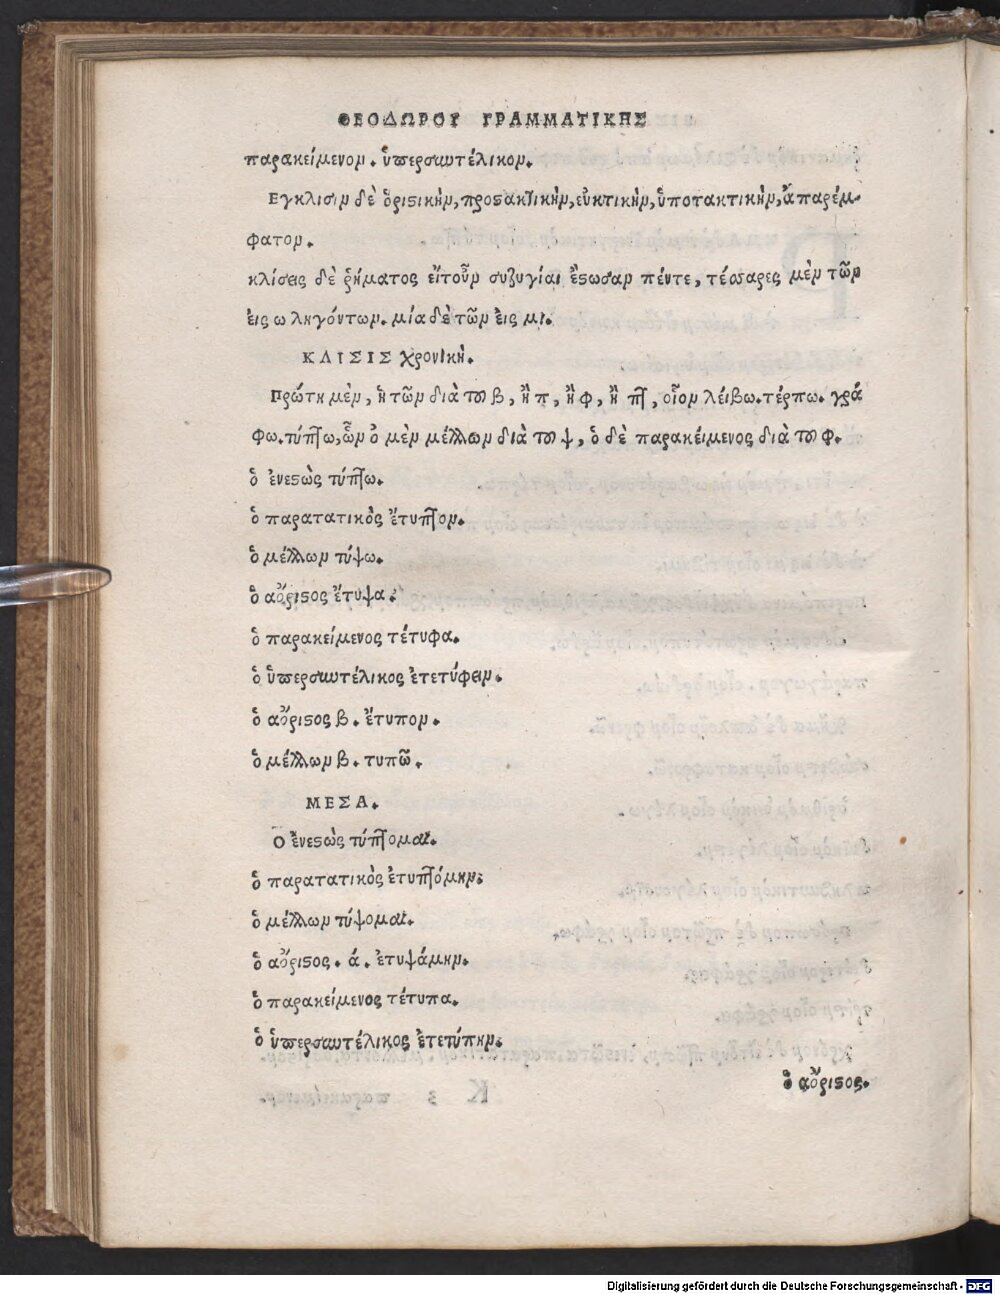 ΘΕΟΔΩΡΟΥ ΓΡΑΜΜΑΤΙΚΗΣ
παρακείμενον. ὑπερσυντέλικον.
Εγκλισιν δὲ ὁριστικὴν, προστακτικὴν, εὐκτικὴν, ὑποτακτικὴν, ἀπαρέμ-
φατον.
κλίσεις δὲ ῥήματος εἴτουν συζυγίαι ἔστωσαν πέντε, τέσσαρες μὲν τῶν
εἰς ω ληγόντων. μία δὲ τῶν εἰς μι.
ΚΛΙΣΙΣ χρονικὴ.
Πρώτη μὲν, ἡ τῶν διὰ του β, ἢ π, ἢ φ, ἢ πτ, οἷον λείβω. τέρπω. γρά
φω. τύπτω, ὧν ὁ μὲν μέλλων διὰ του ψ, ὁ δὲ παρακείμενος διὰ του φ.
ὁ ἐνεστὼς τύπτω.
ὁ παρατατικὸς ἔτυπτον.
ὁ μέλλων τύψω.
ὁ αὄριστος ἔτυψα.
ὁ παρακείμενος τέτυφα.
ὁ ὑπερσυντέλικος ἐτετύφειν.
ὁ αὄριστος β. ἔτυπον.
ὁ μέλλων β. τυπῶ.
ΜΕΣΑ.
Ο ἐνεστὼς τύπτομαι.
ὁ παρατατικὸς ἐτυπτόμην.
ὁ μέλλων τύψομαι.
ὁ αὄριστος. ά. ἐτυψάμην.
ὁ παρακείμενος τέτυπα.
ὁ ὑπερσυντέλικος ἐτετύπην.
ὁ αὄριστος.
Digitalisierung gefördert durch die Deutsche Forschungsgemeinschaft - DFG